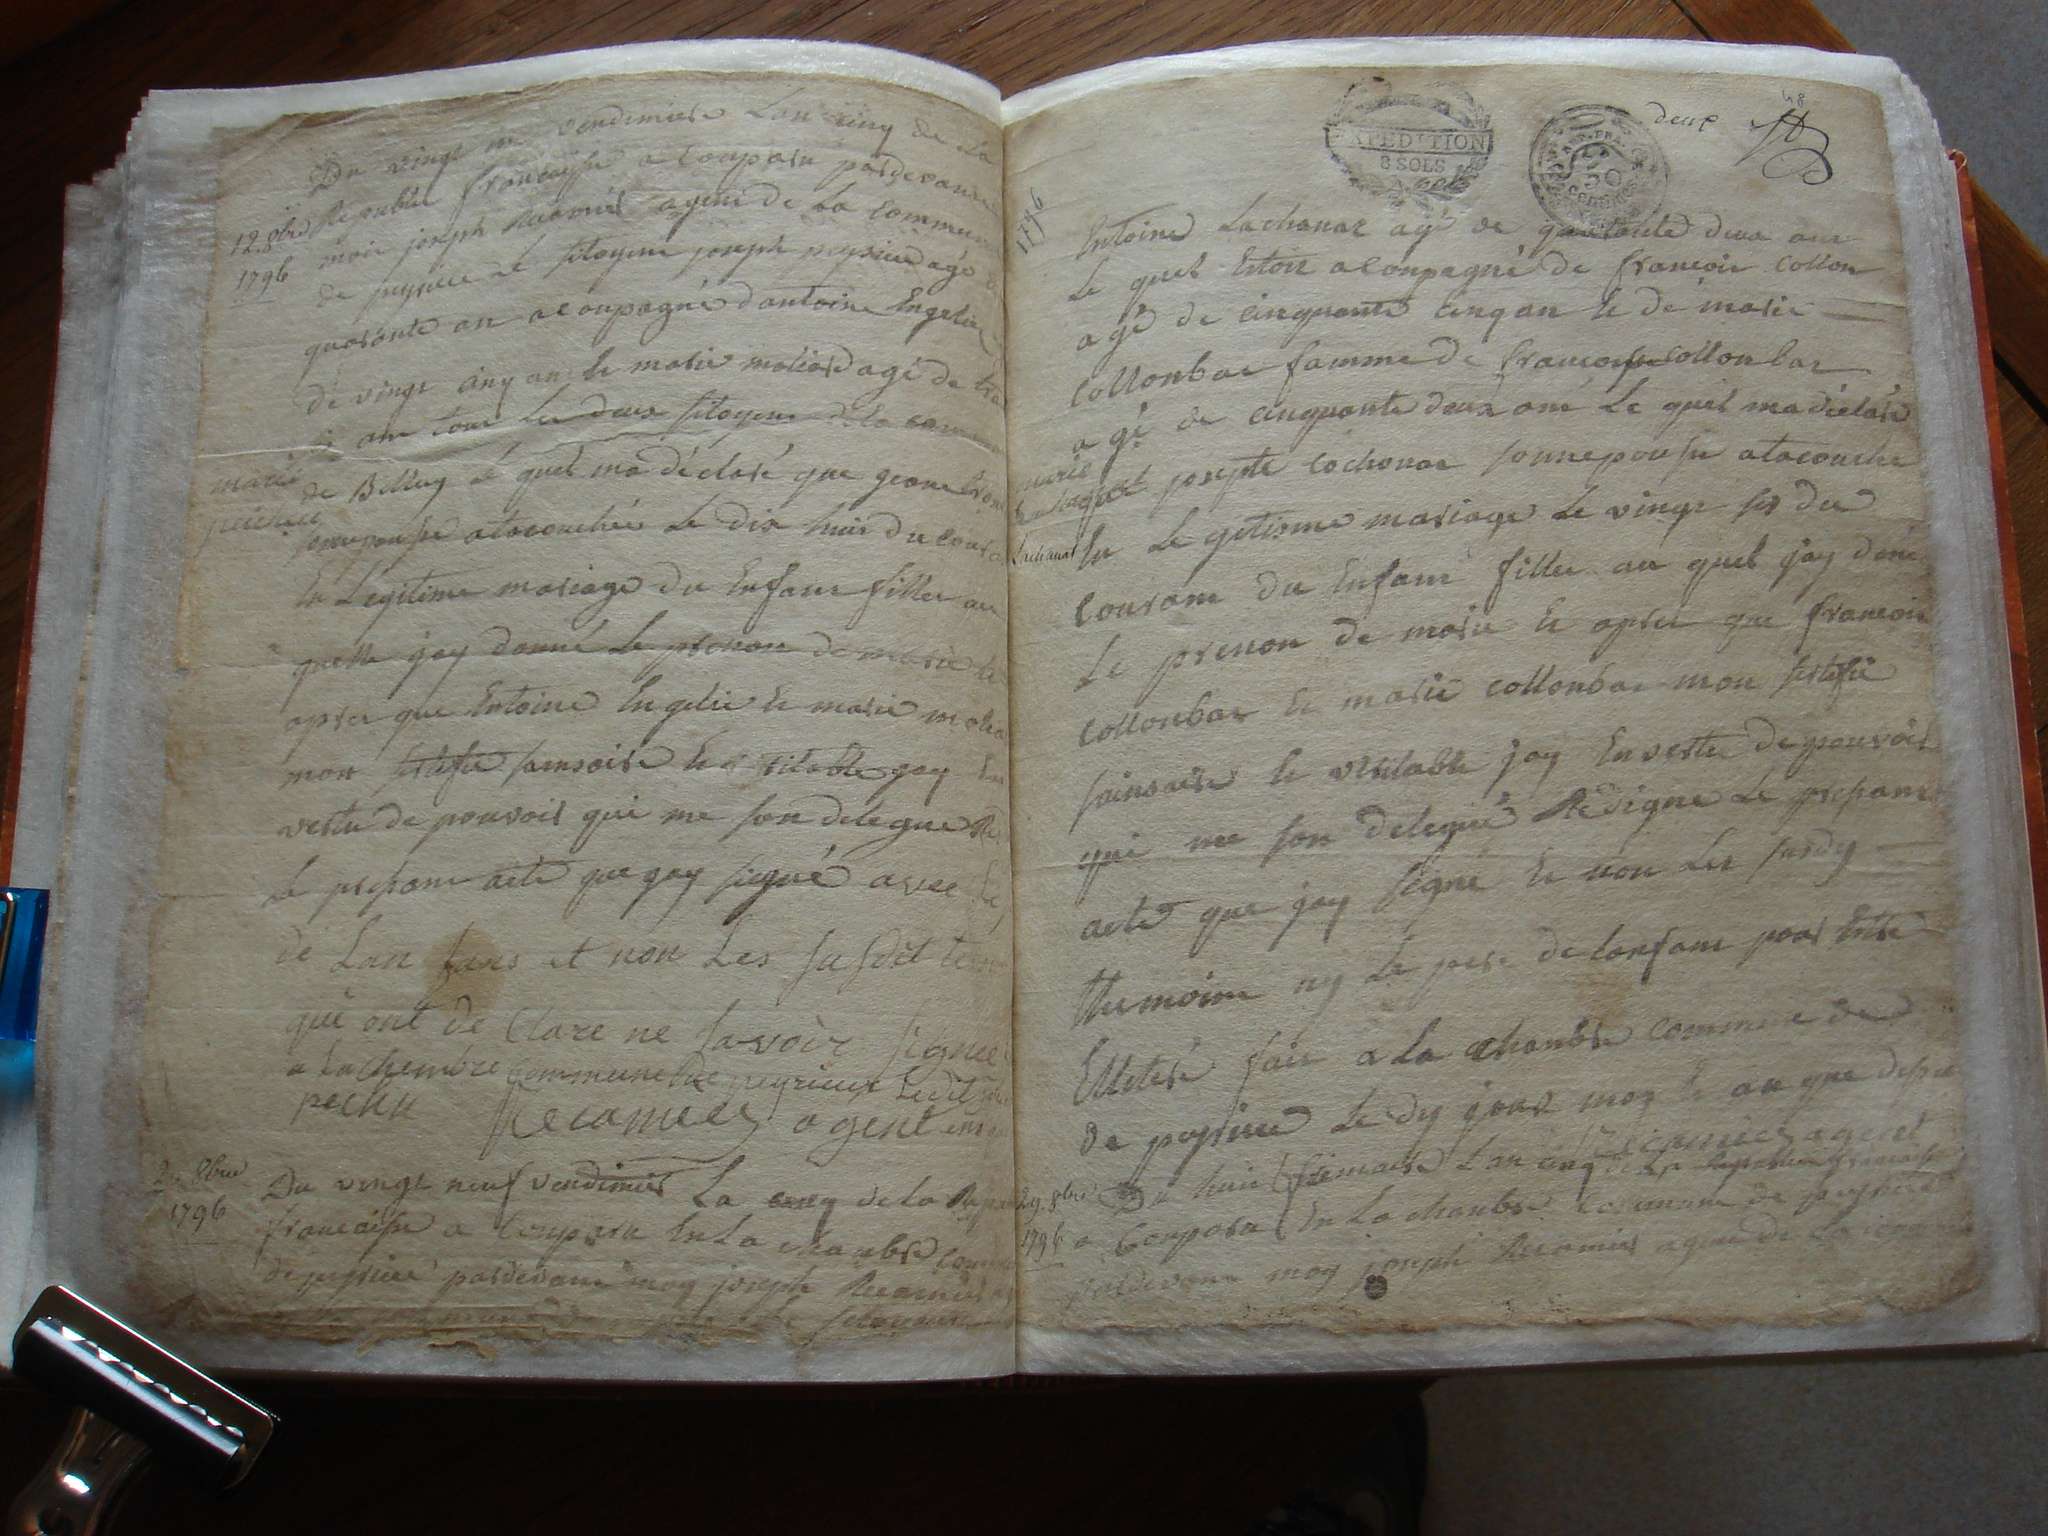 Du vingt un vendemiere Lan cinq de La
Republi francaise a Conparu pardevant
12. 8bre
1796
moir joseph Recamiés agent de La Commune
de peyrieu le sitoyen joseph peysieu agé
quarante an aconpagné dantoine Engelie
de vingt cinq an et marie moliard agé de tra
ans tous les deux sitoyens de la commune
marie
peisieu
de Belley Le quel ma déclaré que
sonnepouse atacouchée Le dix huit du coura
En Legitime mariage du Enfant filles au
quelle jay donné Le prenon de marie Et
apres que Entoine Engelie Et marie molia
mon sertifie sainsaire Et veritable jay En
vertu de pouvoir qui me son delegué Re
Le presant acte que jay signé avec
de Lan fans et non Les susdit tem
qui ont de Clare ne savoir signee
a La chembre Commune de peyrieux Ledit jour
Recamier agent
29 8bre
1796
Du vingt neuf vendimiés La cinq de La Repu
francaise a Conparu En La chanbre Commu
de peyrieu pardevant moy joseph Recamiés
sitoyens
EXPEDITION
8 SOLS
deux
48
1796
Entoine Lachanaz agé de quarante deux ans
Le quel Entoine aconpagné de francois Collon
agé de cinquante cinq an Et de marie
Collonbar famme de francois Collonbar
agé de cinquante deux ans Le quel ma déclaré
marie
Lachanas
josepte Lachanas sonnepouse atacouche
En Le getisme mariage Le vingt six du
Courant du Enfant filles au quel jay doné
Le prenon de marie Et apres que francois
Collonbar Et marie Collonbar mon sertifie
sainsaire Et veritable jay En vertu de pouvoir
qui me son delegué Redigne Le presant
acte que jay signé Et non Les susdy
themoins ny Le pere de lenfant pour Entre
Elletéré fait a La chanbre Commune de
de peyrieu Le dy jour moy Et an que dessu
Recamier agent
29. 8bre
1796
Du huit frimaire Lan cinq de La Republique francaise
a Conparu En La chanbre Commune de peyrieu
pardevant moy joseph Recamiés agent de La comm